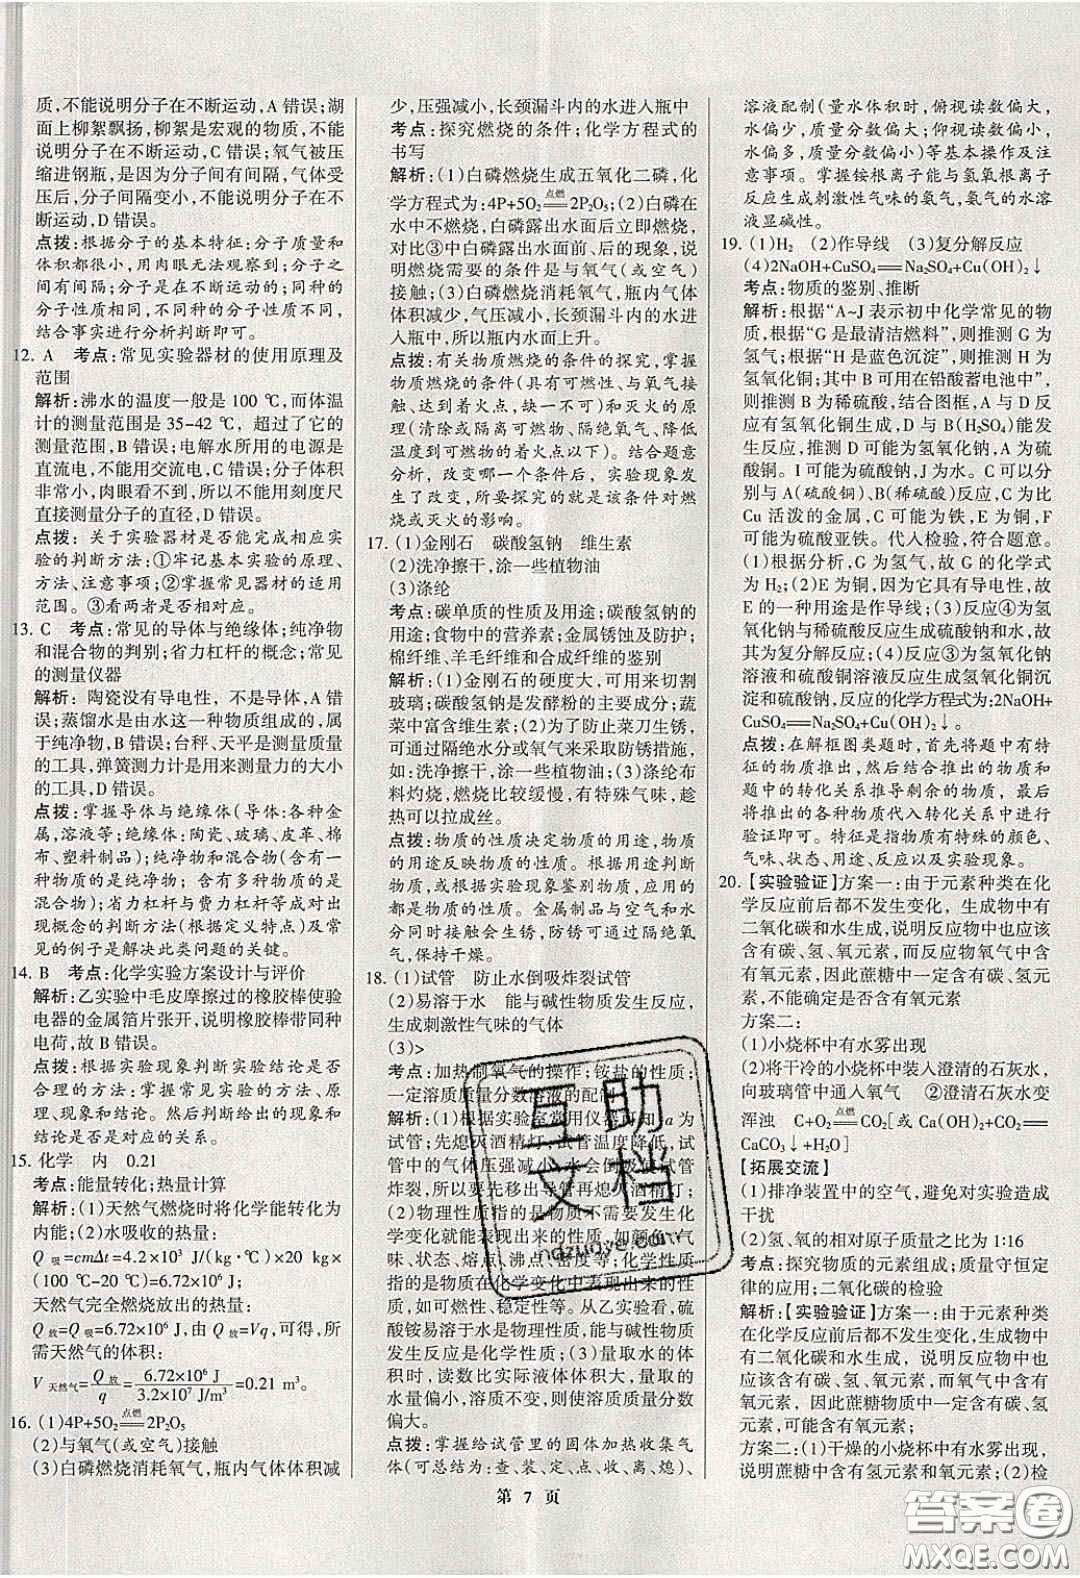 质,不能说明分子在不断运动,A错误;湖
面上柳絮飘扬,柳絮是宏观的物质,不能
说明分子在不断运动,C错误;氧气被压
缩进钢瓶,是因为分子间有间隔,气体受
压后,分子间隔变小,不能说明分子在
不断运动,D错误。
点拨:根据分子的基本特征:分子质量和
体积都很小,用肉眼无法观察到;分子之
间有间隔;分子是在不断运动的;同种的
分子性质相同,不同种的分子性质不同,
结合事实进行分析判断即可。
12. A 考点:常见实验器材的使用原理及
范围
解析:沸水的温度一般是100 ℃,而体温
计的测量范围是35-42 ℃,超过了它的
测量范围,B错误;电解水所用的电源是
直流电,不能用交流电,C错误;分子体积
非常小,肉眼看不到,所以不能用刻度尺
直接测量分子的直径,D错误。
点拨:关于实验器材是否能完成相应实
验的判断方法:①牢记基本实验的原理、
方法、注意事项;②掌握常见器材的适用
范围。③看两者是否相对应。
13. C 考点:常见的导体与绝缘体;纯净物
和混合物的判别;省力杠杆的概念;常见
的测量仪器
解析:陶瓷没有导电性,不是导体,A错
误;蒸馏水是由水这一种物质组成的,属
于纯净物,B错误;台秤、天平是测量质量
的工具,弹簧测力计是用来测量力的大小
的工具,D错误。
点拨:掌握导体与绝缘体(导体:各种金
属,溶液等;绝缘体:陶瓷、玻璃、皮革、棉
布、塑料制品);纯净物和混合物(含有一
种物质的是纯净物;含有多种物质的是
混合物);省力杠杆与费力杠杆等成对出
现概念的判断方法(根据定义特点)及常
见的例子是解决此类问题的关键。
14. B 考点:化学实验方案设计与评价
解析:乙实验中毛皮摩擦过的橡胶棒使验
电器的金属箔片张开,说明橡胶棒带同种
电荷,故B错误。
点拨:根据实验现象判断实验结论是否
合理的方法:掌握常见实验的方法、原
理、现象和结论。然后判断给出的现象和
结论是否是对应的关系。
15. 化学 内 0.21
考点:能量转化;热量计算
解析:(1)天然气燃烧时将化学能转化为
内能;(2)水吸收的热量:
Q吸=cmΔt=4.2×10³ J/(kg·℃)×20 kg×
(100 ℃-20 ℃)=6.72×10⁶ J;
天然气完全燃烧放出的热量:
Q放=Q吸=6.72×10⁶ J,由Q放=Vq,可得,所
需天然气的体积:
V天然气=Q放/q=6.72×10⁶ J/3.2×10⁷ J/m³=0.21 m³。
16. (1)4P+5O₂=点燃=2P₂O₅
(2)与氧气(或空气)接触
(3)白磷燃烧消耗氧气,瓶内气体体积减
少,压强减小,长颈漏斗内的水进入瓶中
考点:探究燃烧的条件;化学方程式的
书写
解析:(1)白磷燃烧生成五氧化二磷,化
学方程式为:4P+5O₂=点燃=2P₂O₅;(2)白磷在
水中不燃烧,白磷露出水面后立即燃烧,
对比③中白磷露出水面前、后的现象,说
明燃烧需要的条件是与氧气(或空气)
接触;(3)白磷燃烧消耗氧气,瓶内气体
体积减少,气压减小,长颈漏斗内的水进
入瓶中,所以瓶内水面上升。
点拨:有关物质燃烧的条件的探究,掌握
物质燃烧的条件(具有可燃物、与氧气接
触、达到着火点,缺一不可)和灭火的原
理(清除或隔离可燃物、隔绝氧气、降低
可燃物的着火点以下)。结合题意
分析,改变哪一个条件后,实验现象发
生了改变,所要探究的就是该条件对燃
烧或灭火的影响。
17. (1)金刚石 碳酸氢钠 维生素
(2)洗净擦干,涂一些植物油
(3)涤纶
考点:碳单质的性质及用途;碳酸氢钠的
用途;食物中的营养素;金属锈蚀及防护;
棉纤维、羊毛纤维和合成纤维的鉴别
解析:(1)金刚石的硬度大,可用来切割
玻璃;碳酸氢钠是发酵粉的主要成分;蔬
菜中富含维生素;(2)为了防止菜刀生锈,
可通过隔绝水分或氧气来采取防锈措施,
如:洗净擦干,涂一些植物油;(3)涤纶布
料灼烧,燃烧比较缓慢,有刺激气味,趁
热可以拉成丝。
点拨:物质的性质决定物质的用途,物质
的用途反映物质的性质。根据用途判断
物质的性质,根据实验现象鉴别物质也
是物质的性质。金属制品与空气和水
分同时接触会生锈,防锈方法为隔绝氧
气,保持干燥。
18. (1)试管 防止水倒吸炸裂试管
(2)易溶于水 能与碱性物质发生反应,
生成刺激性气味的气体
(3)>
考点:加热制氧气的操作;铵盐的性质;
一定溶质质量分数溶液的配制
解析:(1)根据实验室常用仪器可知,a为
试管;先熄灭酒精灯,试管温度降低,试
管中的气体压强减小,水会倒吸使试管
炸裂,所以要先移出导管再熄灭酒精灯;
(2)物理性质指的是物质不需要发生
化学变化就能表现出来的性质,如颜色、气
味、状态、熔点、沸点、密度等;化学性质
指的是物质在化学变化中表现出来的性
质,如可燃性、稳定性等。从乙实验看,硫
酸铵易溶于水是物理性质,能与碱性物质
反应是化学性质;(3)量取水的体积
时,读数比实际液体体积大,称取的
固体不变,溶质不变,所以溶质质量分数
偏大。
点拨:掌握给试管里的固体加热收集气
体(可总结为:查、装、定、点、收、离、熄)、
溶液配制(量水体积时,俯视读数偏大,
水偏少,质量分数偏大;仰视读数偏小,
水偏多,质量分数偏小)等基本操作及注
意事项。掌握铵根离子能与氢氧根离子
反应生成刺激性气味的氨气,氨气的水溶
液显碱性。
19. (1)H₂ (2)作导线 (3)复分解反应
(4)2NaOH+CuSO₄=Na₂SO₄+Cu(OH)₂↓
考点:物质的鉴别、推断
解析:根据“A~J表示初中化学常见的物
质,根据“G是最清洁燃料”,则推测G为
氢气;根据“H是蓝色沉淀”,则推测H为
氢氧化铜;其中B可用在铅酸蓄电池中”,
则推测B为稀硫酸,结合图框,A与D反
应有氢氧化铜生成,D与B(H₂SO₄)能发
生反应,推测D可能为氢氧化钠,A为硫
酸铜。I可能为硫酸钠,J为水。C可以分
别与A(硫酸铜)、B(稀硫酸)反应,C为比
Cu活泼的金属,C可为铁,E为铜,F
可能为硫酸亚铁。代入检验,符合题意。
(1)根据分析,G为氢气,所以G的化学式
为H₂;(2)E为铜,因为它具有导电性,故
E的一种用途为作导线;(3)反应①为氢
氧化钠与稀硫酸反应生成硫酸钠和水,故
其为复分解反应;(4)反应③为氢氧化钠
溶液和硫酸铜溶液反应生成氢氧化铜沉
淀和硫酸钠,反应的化学方程式为:2NaOH+
CuSO₄=Na₂SO₄+Cu(OH)₂↓。
点拨:在解框图类题时,首先将题中有特
征的物质推出,然后结合推出的物质和题
中的转化关系推导剩余的物质,最后将
推出的各种物质代入转化关系中进行
验证即可。特征是指物质有特殊的颜色、
气味、状态、用途、反应以及实验现象。
20. 【实验验证】方案一:由于元素种类在化
学反应前后都不发生变化,生成物中有
二氧化碳和水,说明反应物中一定含有
碳、氢、氧元素,而反应物氧气中含
有氧元素,因此蔗糖中一定含有碳、氢元
素,不能确定是否含有氧元素
方案二:
(1)小烧杯中有水雾出现
(2)将干冷的小烧杯中装入澄清的石灰水,
向玻璃管中通入氧气 ②澄清石灰水变
浑浊 C+O₂=点燃=CO₂[或Ca(OH)₂+CO₂=
CaCO₃↓+H₂O]
【拓展交流】
(1)排净装置中的空气,避免对实验造成
干扰
(2)氢、氧的相对原子质量之比为1∶16
考点:探究物质的元素组成;质量守恒定
律的应用;二氧化碳的检验
解析:【实验验证】方案一:由于元素种类
在化学反应前后都不发生变化,生成物中
有二氧化碳和水生成,说明反应物中也
应该含有碳、氢、氧元素,而氧气中含有氧
元素,因此蔗糖中一定含有碳元素和氢
元素,可能含有氧元素;
方案二:(1)干燥的小烧杯中有水雾出现,
说明蔗糖中含有氢元素和氧元素;(2)检
第 7 页
互助文档
ndzuoye.com
答案圈
MXQE.COM